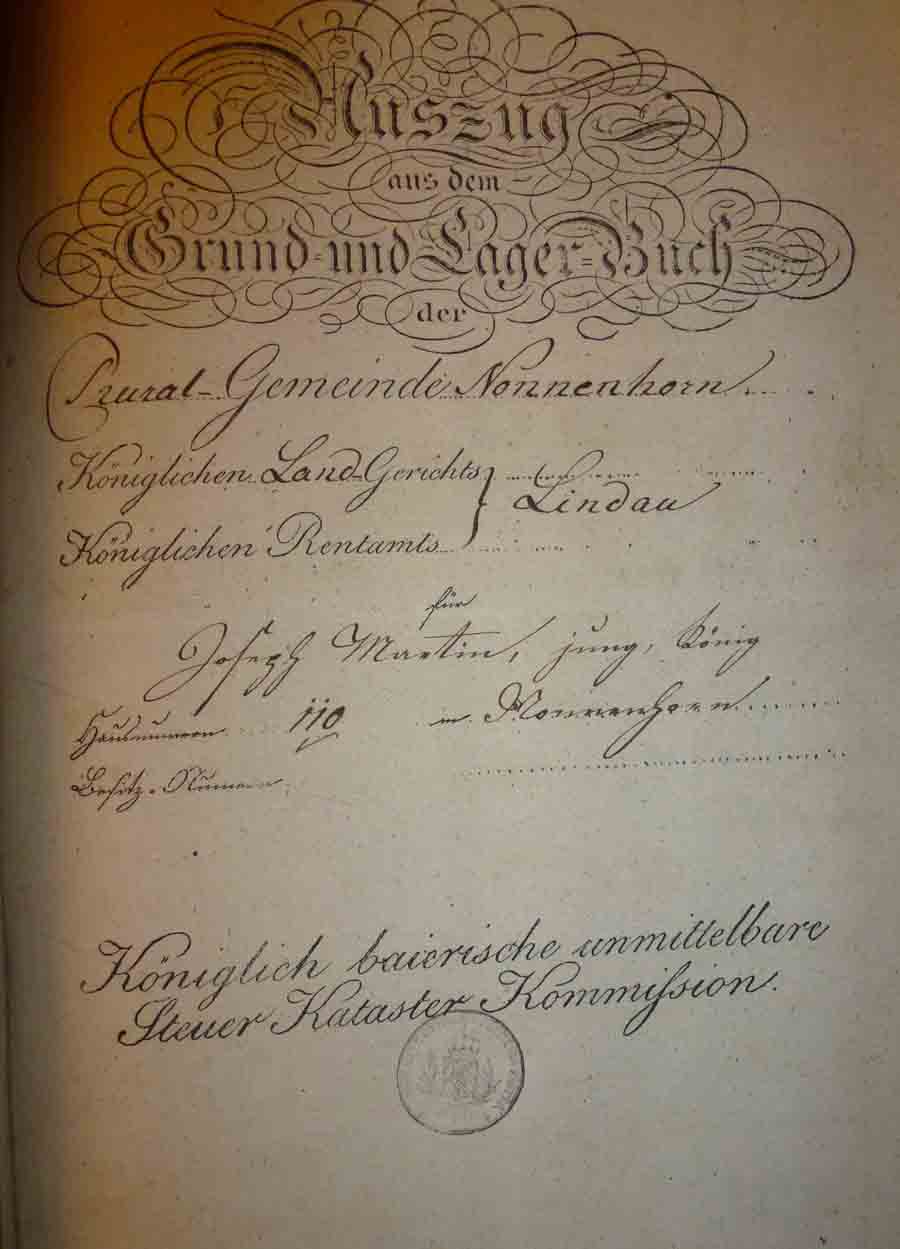 Auszug
aus dem
Grund- und Lager-Buch
der
Rural-Gemeinde Nonnenhorn
Königlichen Land-Gerichts } Lindau
Königlichen Rentamts
für
Joseph Martin, jung, König
Hausnumern 110 in Nonnenhorn
Besitz-Numern
Königlich baierische unmittelbare
Steuer Kataster Kommission.